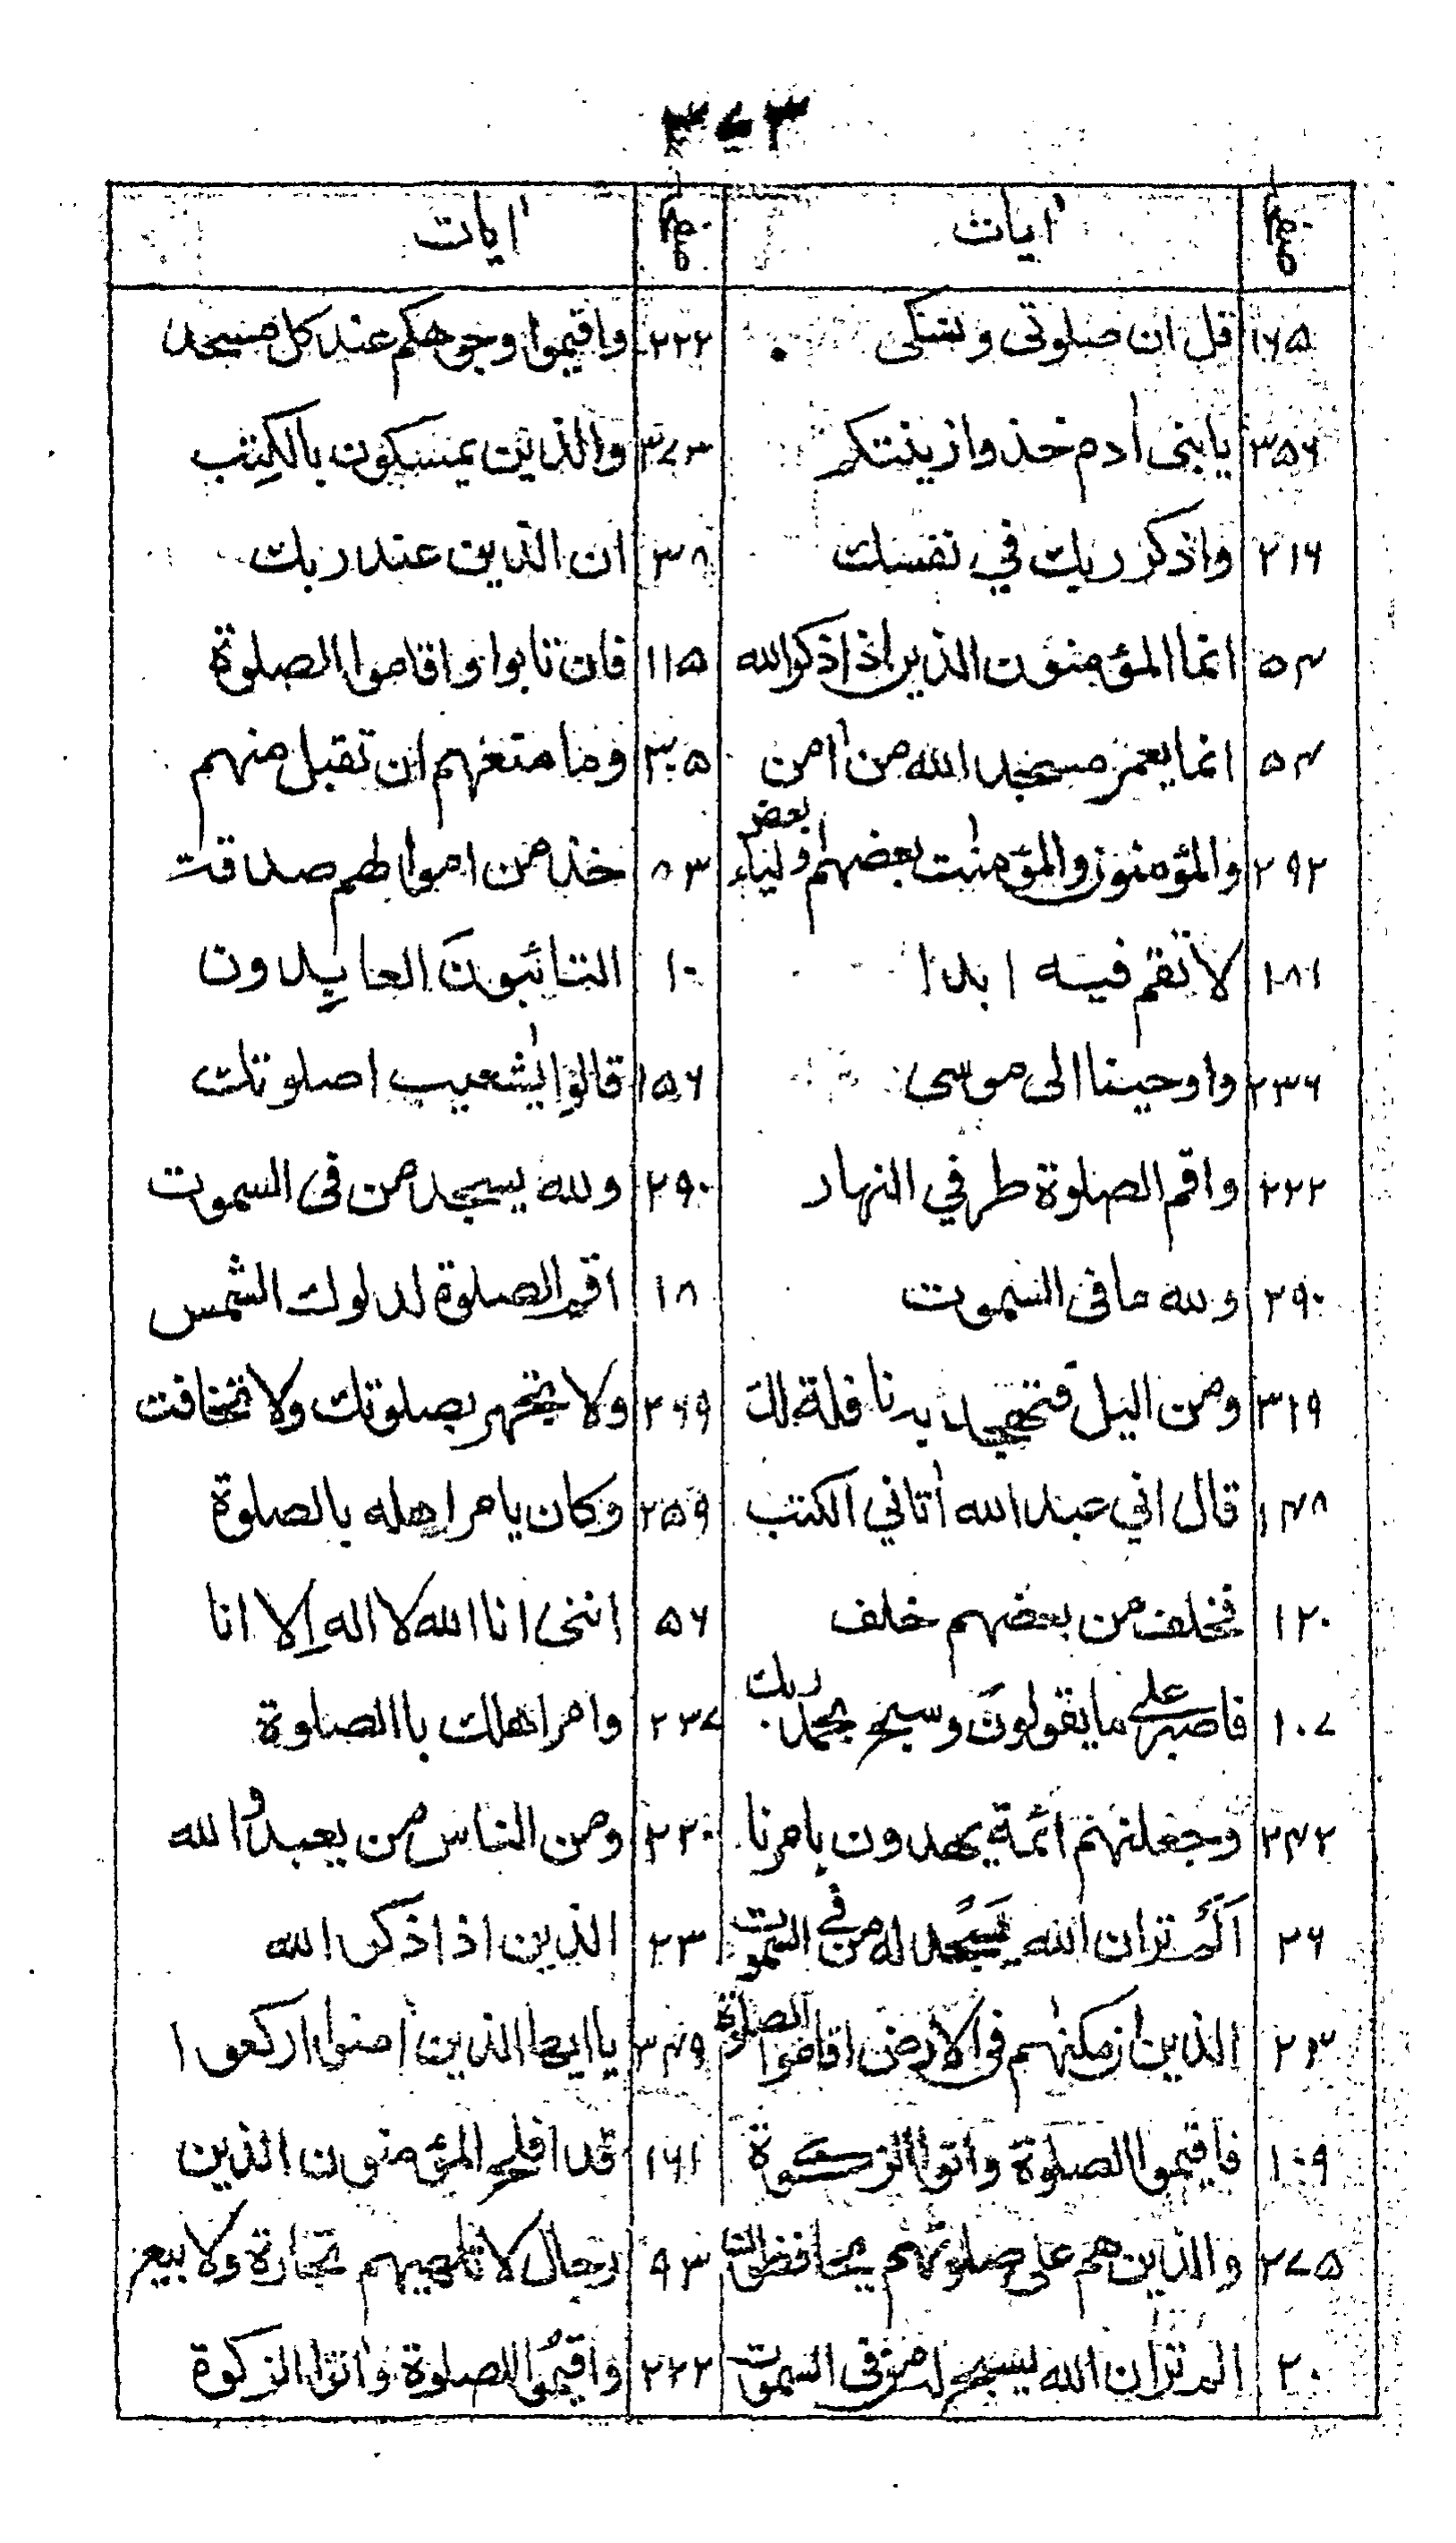 ۳۷۳
صفحہ اٰیات صفحہ اٰیات
۱۶۵ قل ان صلوتی ونسکی ۲۲۲ واقیموا وجوهکم عند کل مسجد
۳۵۶ یا بنی اٰدم خذوا زینتکم ۳۷۳ والذین یمسکون بالکِتٰب
۲۱۶ واذکر ربك في نفسك ۳۸ ان الذین عند ربك
۵۴ انما المؤمنون الذین اذا ذکر الله ۱۱۵ فان تابوا واقاموا الصلوة
۵۴ انما یعمر مسٰجد الله من اٰمن ۳۰۵ وما منعهم ان تقبل منهم
۲۹۲ والمؤمنون والمؤمنٰت بعضهم اولیاء بعض ۸۳ خذ من اموالهم صدقة
۱۸۱ لا تقم فیه ابدا ۱۰ التائبونَ العابِدون
۲۳۶ واوحینا الی موسی ۱۵۶ قالوا یٰشعیب اصلوتك
۲۲۲ واقم الصلوة طرفي النهار ۲۹۰ ولله یسجد من فی السموت
۲۹۰ ولله ما فی السموت ۱۸ اقم الصلوة لدلوك الشمس
۳۱۹ ومن الیل فتهجد به نافلة لك ۲۶۹ ولا تجهر بصلوتك ولا تخافت
۱۴۸ قال اني عبد الله اٰتاني الکتٰب ۲۵۹ وکان یامر اهله بالصلوة
۱۲۰ فخلف من بعضهم خلف ۵۶ اننی انا الله لا اله اِلا انا
۱۰۷ فاصبر علی ما یقولونَ وسبح بحمد ربك ۲۳۷ وامر اهلك با الصلوة
۲۴۲ وجعلنهم ائمة یهدون بامرنا ۲۲۰ ومن الناس من یعبد والله
۲۶ اَلَم تر ان الله یَسجُد له من في السموت ۲۳ الذین اذا ذکر الله
۲۳ الذین ان مکنٰهم فی الارض اقاموا الصلوة ۳۴۹ یا ایها الذین اٰمنوا ارکعوا
۱۰۹ فاقیموا الصلوة واتوا الزکوة ۱۶۱ قد افلح المؤمنون الذین
۲۷۵ والذین هم علی صلوتهم یحافظون ۹۳ رجال لا تلهیهم تجارة ولا بیع
۲۰ الم تر ان الله یسبح له من فی السموت ۲۲۲ واقیمُوا الصلوة واتوا الزکوة